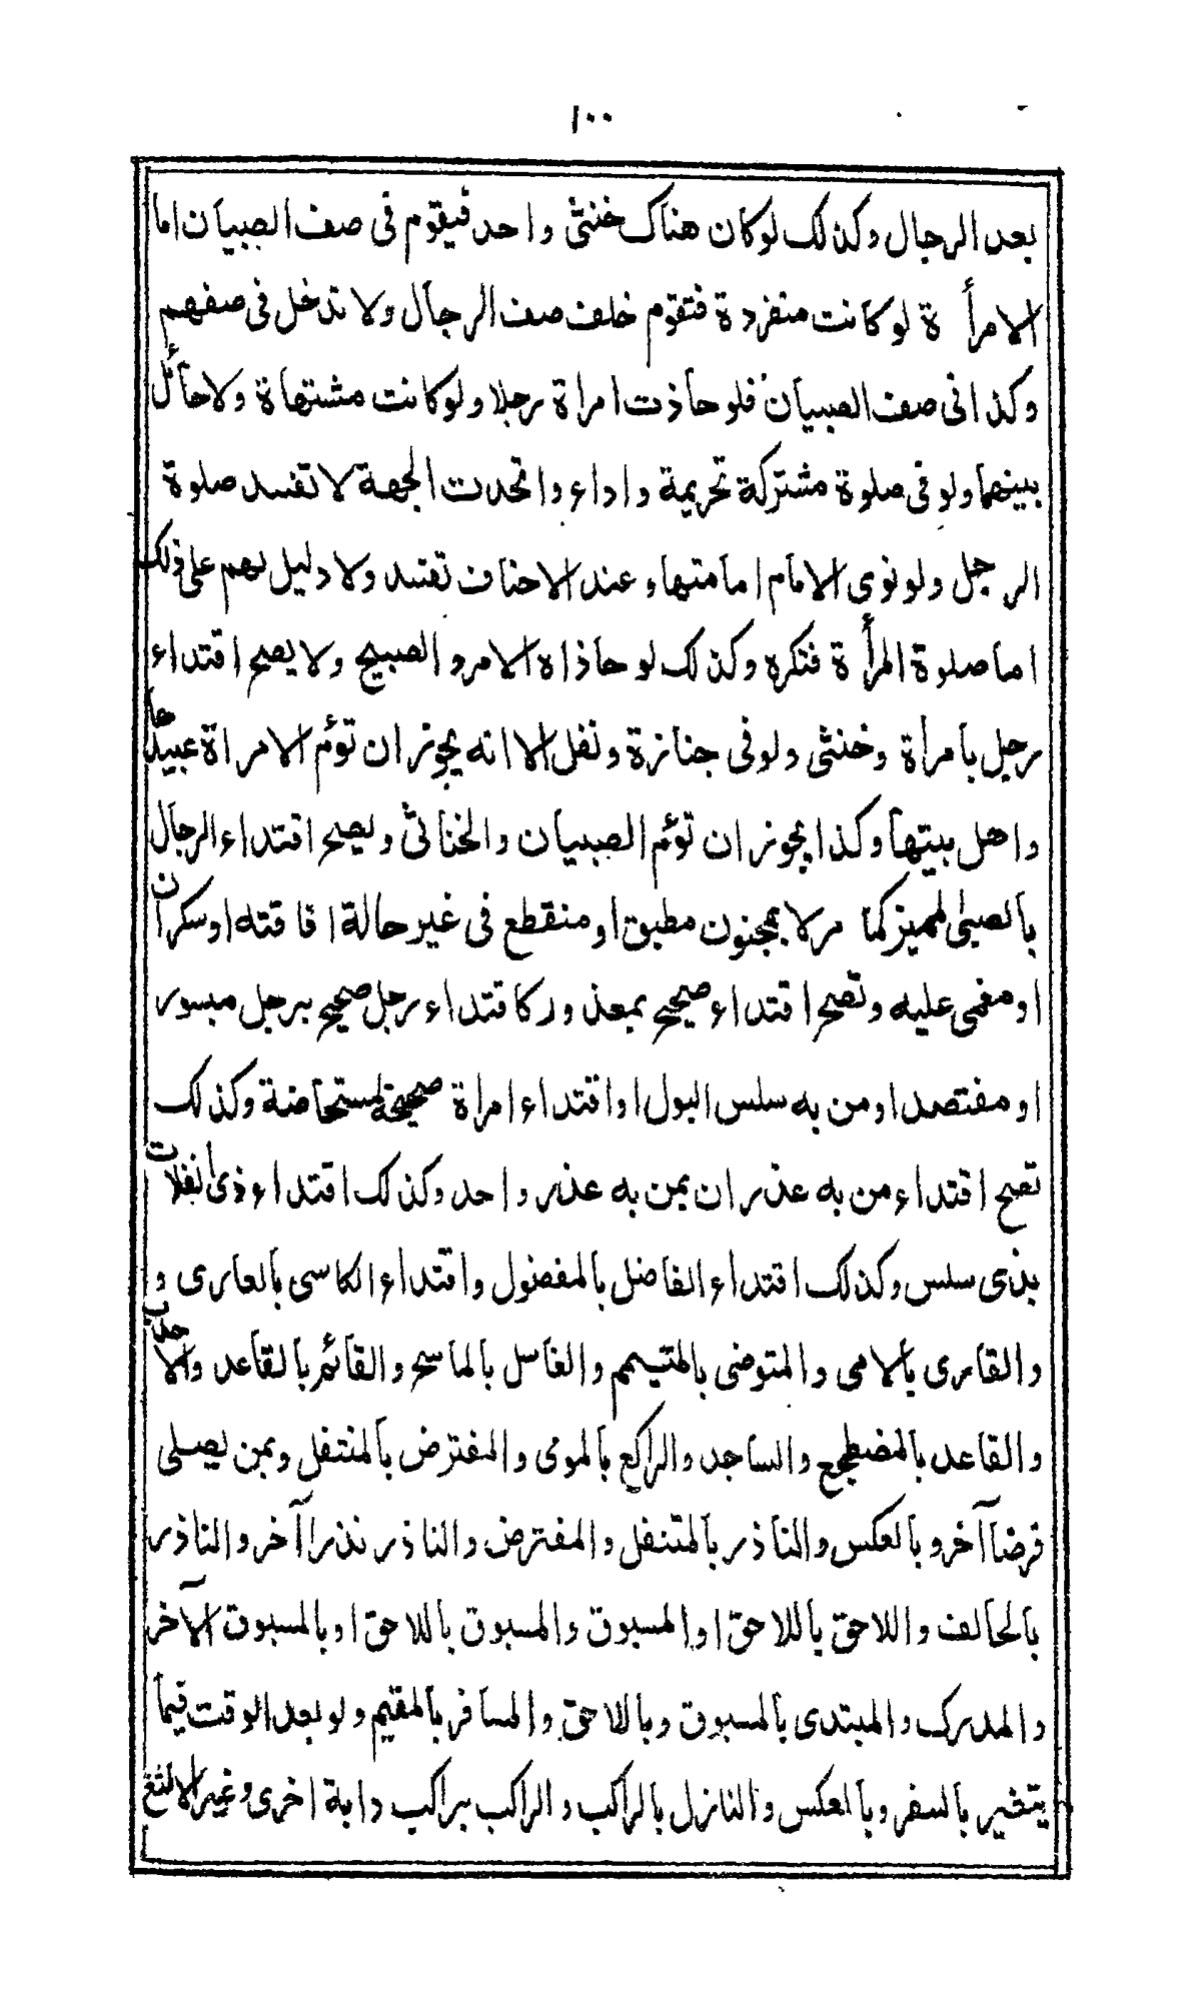 ١٠٠
بعد الرجال وكذلك لوكان هناك خنثى واحد فيقوم فى صف الصبيان اما
الامرأة لوكانت منفردة فتقوم خلف صف الرجال ولا تدخل فى صفهم
وكذا فى صف الصبيان فلو حاذت امراة رجلا ولوكانت مشتهاة ولا حائل
بينهما ولو فى صلوة مشتركة تحريمة واداء واتحدت الجهة لا تفسد صلوة
الرجل ولو نوى الامام امامتها وعند الاحناف تفسد ولا دليل لهم على ذلك
اما صلوة المرأة فتكره وكذلك لو حاذاه الامرد الصبيح ولا يصح اقتداء
رجل بامرأة وخنثى ولو فى جنازة ونفل الا انه يجوز ان تؤم الامراة عبيدها
واهل بيتها وكذا يجوز ان تؤم الصبيان والخناثى ويصح اقتداء الرجال
بالصبى المميز كما مر لا بمجنون مطبق او منقطع فى غير حالة افاقته او سكران
او مغمى عليه وتصح اقتداء صحيح بمعذور كاقتداء رجل صحيح برجل مبسور
او مفتصد او من به سلس البول او اقتداء امراة صحيحة لمستحاضة وكذلك
تصح اقتداء من به عذران بمن به عذر واحد وكذلك اقتداء ذى انفلات
بذى سلس وكذلك اقتداء الفاضل بالمفضول واقتداء الكاسى بالعارى و
والقارى بالامى والمتوضى بالمتيمم والغاسل بالماسح والقائم بالقاعد والاحدب
والقاعد بالمضطجع والساجد والراكع بالمومى والمفترض بالمنتفل وبمن يصلى
فرضا آخر وبالعكس والناذر بالمتنفل والمفترض والناذر نذرا آخر والناذر
بالحالف واللاحق باللاحق او المسبوق والمسبوق باللاحق او بالمسبوق الآخر
والمدرك والمبتدى بالمسبوق وباللاحق والمسافر بالمقيم ولو بعد الوقت فيما
يتغير بالسفر وبالعكس والنازل بالراكب والراكب براكب دابة اخرى وغير الالثغ